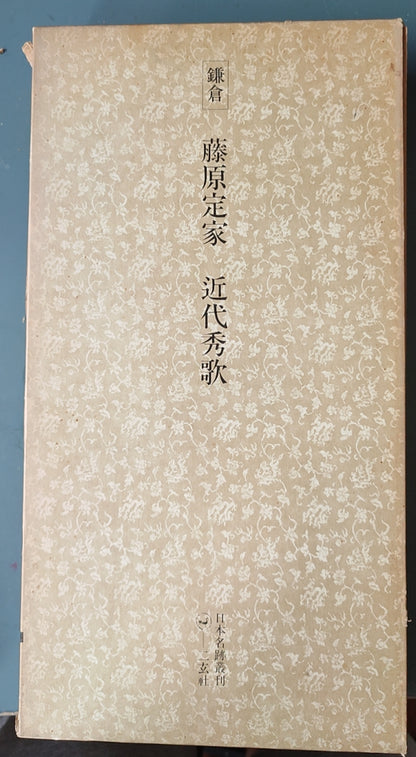 鎌倉
藤原定家 近代秀歌
日本名跡叢刊
二玄社